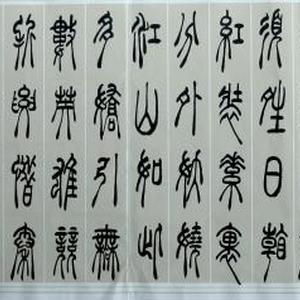 須晴日看
紅裝素裹
分外妖嬈
江山如此
多嬌引無
數英雄競
折腰惜秦